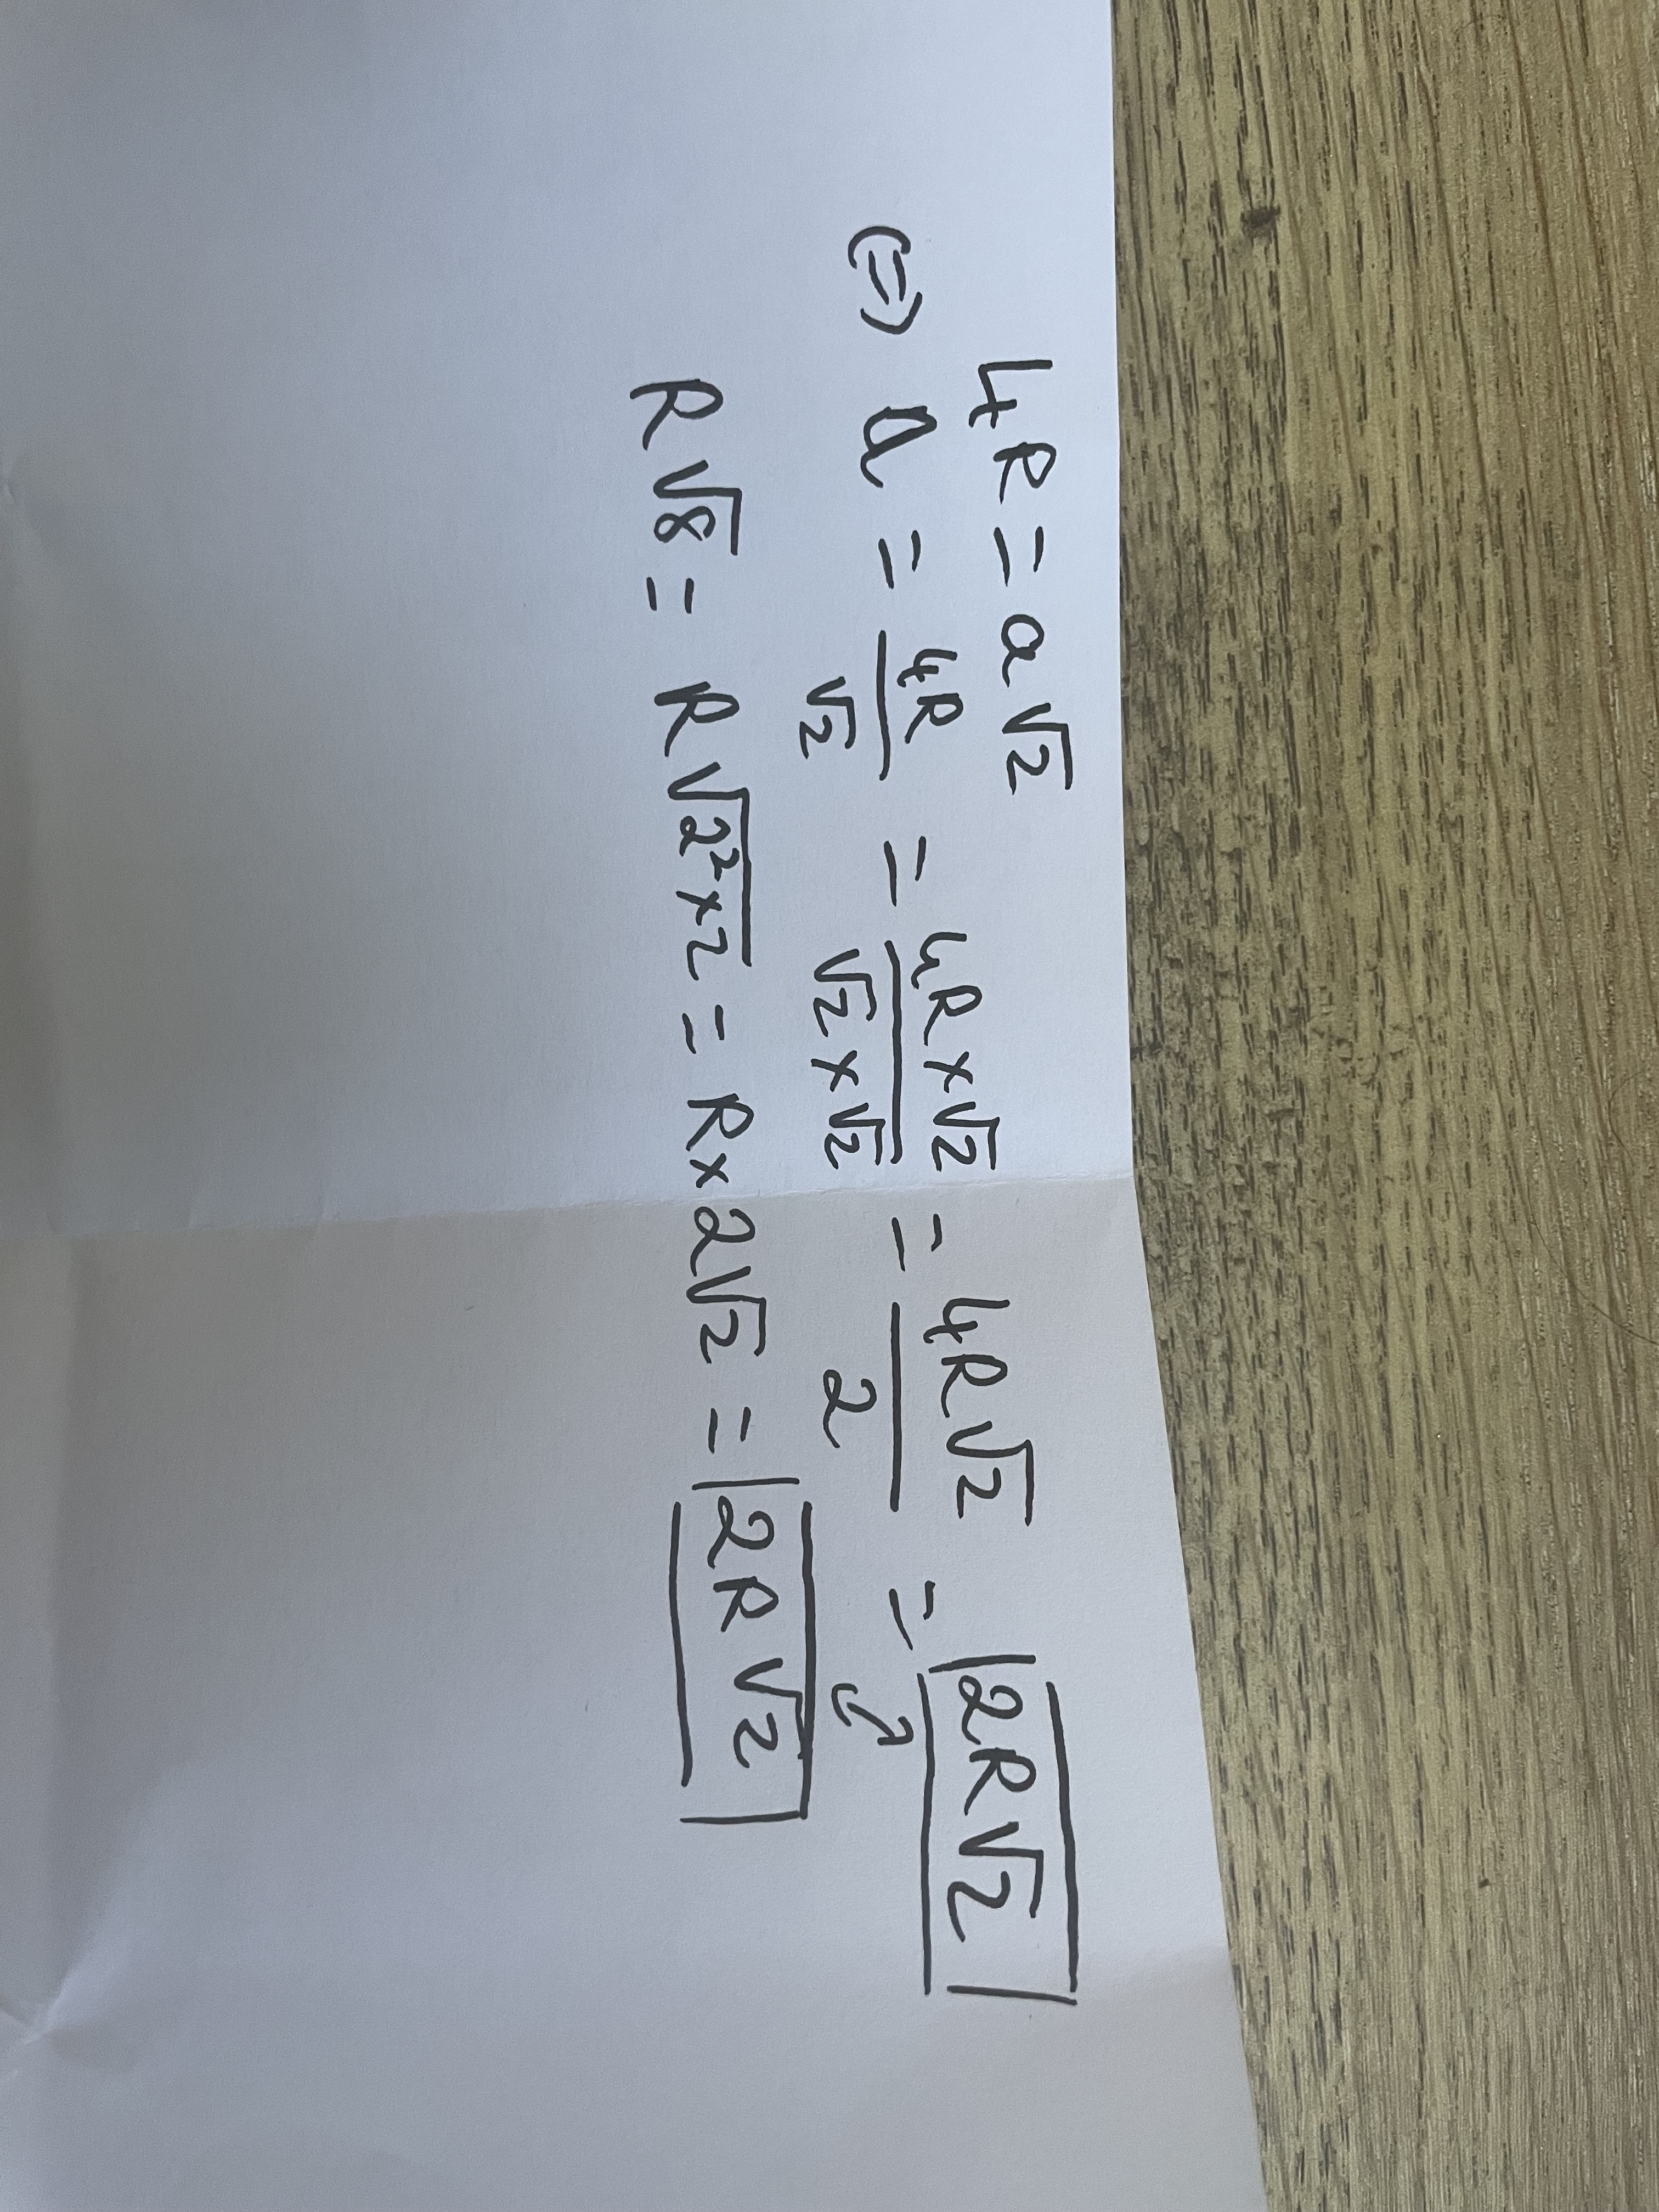 4R = a√2
(=) a = 4R/√2 = 4R×√2/√2×√2 = 4R√2/2 = 2R√2
R√8 = R√2²×2 = R×2√2 = 2R√2